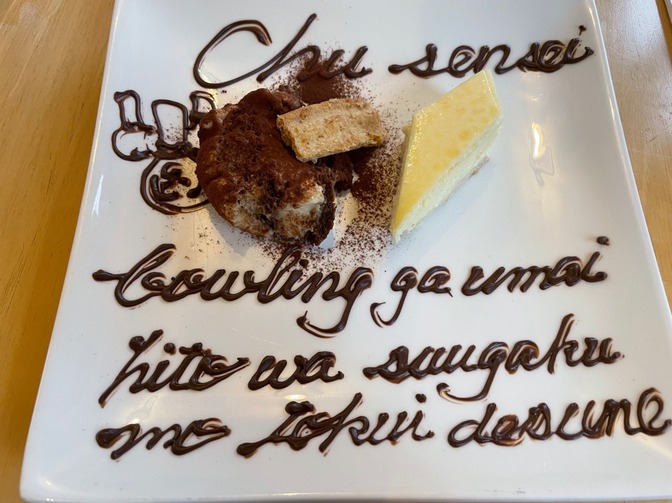 Chu sensei
bowling ga umai
hito wa saugaku
mo tokui desune